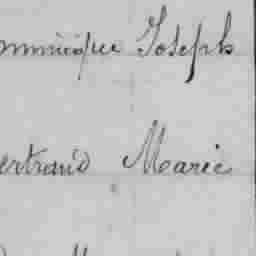 ominique Joseph
ertrand Marie